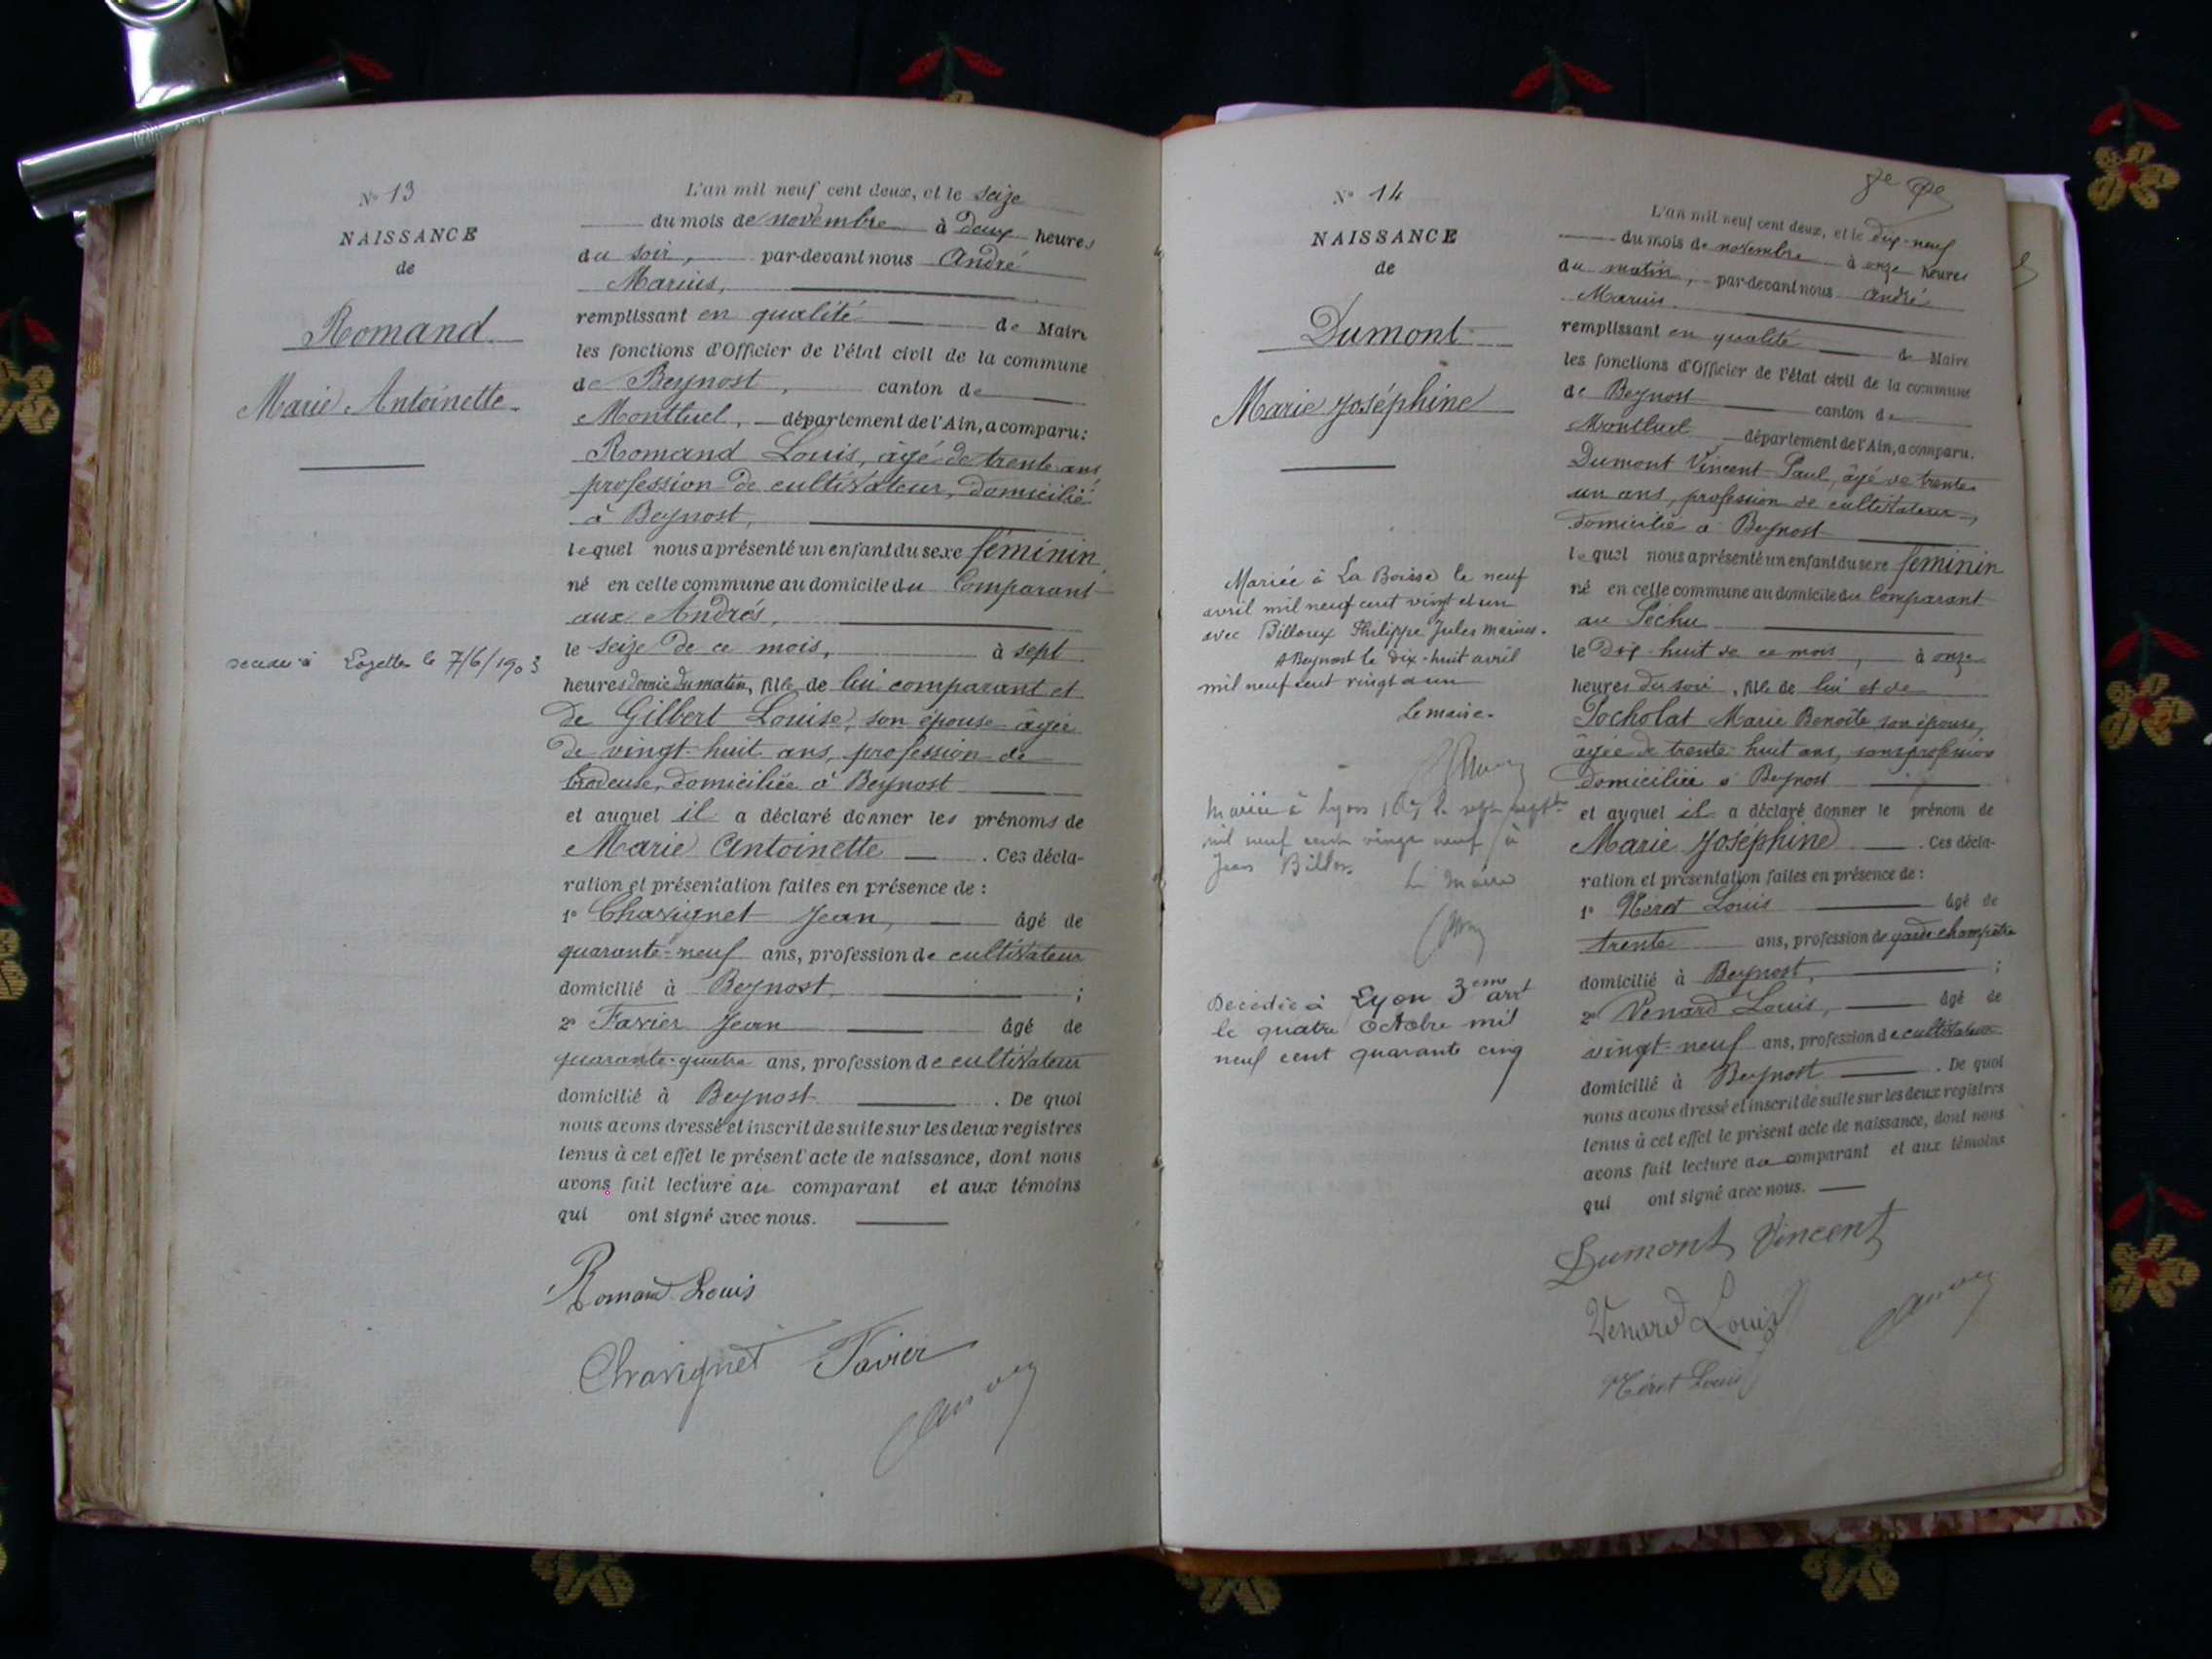 N° 13
NAISSANCE
de
Romand
Marie Antoinette
Lozettes le 7/6/1903
L'an mil neuf cent deux, et le seize
du mois de novembre à deux heures
du soir, par-devant nous André
Marius,
remplissant en qualité de Maire
les fonctions d'Officier de l'état civil de la commune
de Beynost, canton de
Montluel, département de l'Ain, a comparu:
Romand Louis, âgé de trente ans
profession de cultivateur, domicilié
à Beynost,
lequel nous a présenté un enfant du sexe féminin
né en cette commune au domicile du Comparant
aux Andrés,
le seize de ce mois, à sept
heures demie du matin, fille de lui comparant et
de Gilbert Louise, son épouse âgée
de vingt-huit ans, profession de
brodeuse, domiciliée à Beynost
et auquel il a déclaré donner les prénoms de
Marie Antoinette. Ces décla-
ration et présentation faites en présence de :
1° Chavignet Jean, âgé de
quarante-neuf ans, profession de cultivateur
domicilié à Beynost ;
2° Favier Jean âgé de
quarante-quatre ans, profession de cultivateur
domicilié à Beynost. De quoi
nous avons dressé et inscrit de suite sur les deux registres
tenus à cet effet le présent acte de naissance, dont nous
avons fait lecture au comparant et aux témoins
qui ont signé avec nous.
Romand Louis
Chavignet Favier
N° 14
NAISSANCE
de
Dumont
Marie Joséphine
Mariée à La Boisse le neuf
avril mil neuf cent vingt et un
avec Billoux Philippe Jules Marius.
A Beynost le dix-huit avril
mil neuf cent vingt et un
Le maire.
Mariée à Lyon le sept
mil neuf cent vingt neuf à
Jean
Le Maire
Décédée à Lyon 3eme arrt
le quatre octobre mil
neuf cent quarante cinq
L'an mil neuf cent deux, et le dix-neuf
du mois de novembre à onze heures
du matin, par-devant nous André
Marius
remplissant en qualité de Maire
les fonctions d'Officier de l'état civil de la commune
de Beynost canton de
Montluel département de l'Ain, a comparu.
Dumont Vincent Paul, âgé de trente
un ans, profession de cultivateur,
domicilié à Beynost
lequel nous a présenté un enfant du sexe féminin
né en cette commune au domicile du Comparant
au Péchu
le Dix-huit de ce mois, à onze
heures du soir, fille de lui et de
Pocholat Marie Benoîte son épouse,
âgée de trente-huit ans, sans profession
domiciliée à Beynost
et auquel il a déclaré donner le prénom de
Marie Joséphine. Ces décla-
ration et présentation faites en présence de :
1° Louis âgé de
trente ans, profession de garde-champêtre
domicilié à Beynost, ;
2° Venard Louis, âgé de
vingt-neuf ans, profession de cultivateur
domicilié à Beynost. De quoi
nous avons dressé et inscrit de suite sur les deux registres
tenus à cet effet le présent acte de naissance, dont nous
avons fait lecture au comparant et aux témoins
qui ont signé avec nous.
Dumont Vincent
Venard Louis
Louis